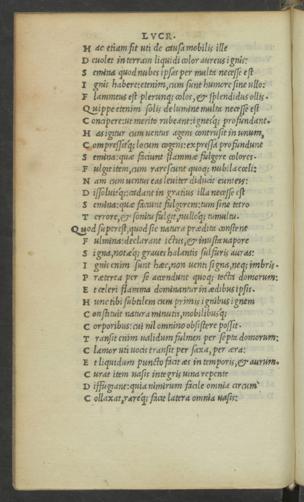 LVCR.
H ac etiam fit uti de causa mobilis ille
D euolet in terram liquidi color aureus ignis:
S emina quod nubes ipsas per multa necesse est
I gnis habere: etenim, cum sunt humore sine ullo:
F lammeus est plerunq; color, & splendidus ollis.
Q uippe etenim solis de lumine multa necesse est
C oncipere: ut merito rubeant: igneisq; profundant.
H as igitur cum uentus agens contrusit in unum,
C ompressitq; locum cogens: expressa profundunt
S emina: quæ faciunt flammæ fulgere colores.
F ulgit item, cum rarescunt quoq; nubila cœli:
N am cum uentus eas leuiter diducit euntes:
D issoluitq;: cadant in gratius illa necesse est
S emina: quæ faciunt fulgorem: tum sine tetro
T errore, & sonitu fulgit, nulloq; tumultu.
Quod superest, quod sic natura prædita constent
F ulmina: declarant ictus, & inusta uapore
S igna, notæq; graueis halantis sulfuris auras:
I gnis enim sunt hæc, non uenti signa, neq; imbris.
P ræterea per se accendunt quoq; tecta domorum:
E t celeri flamma dominantur in ædibus ipsis.
H unc tibi subtilem cum primis ignibus ignem
C onstituit natura minutis, mobilibusq;
C orporibus: cui nil omnino obsistere possit.
T ransit enim ualidum fulmen per septa domorum:
C lamor uti uocis transit per saxa, per æra:
E t liquidum puncto facit æs in temporis, & aurum.
C urat item uasis integris uina repente
D iffugiant: quia nimirum facile omnia circum
C ollaxat, rareq; facit latera omnia uasis: